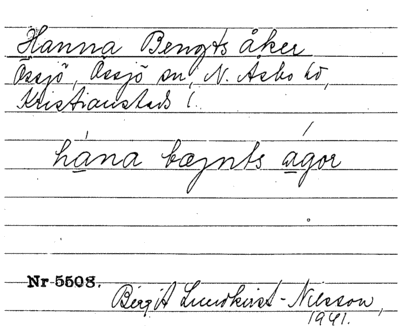 Hanna Bengts åker
Össjö, Össjö sn, N. Åsbo hd,
Kristianstads l.
hana bæjnts agor
Nr 5508.
Birgit Lundkvist-Nilsson,
1941.